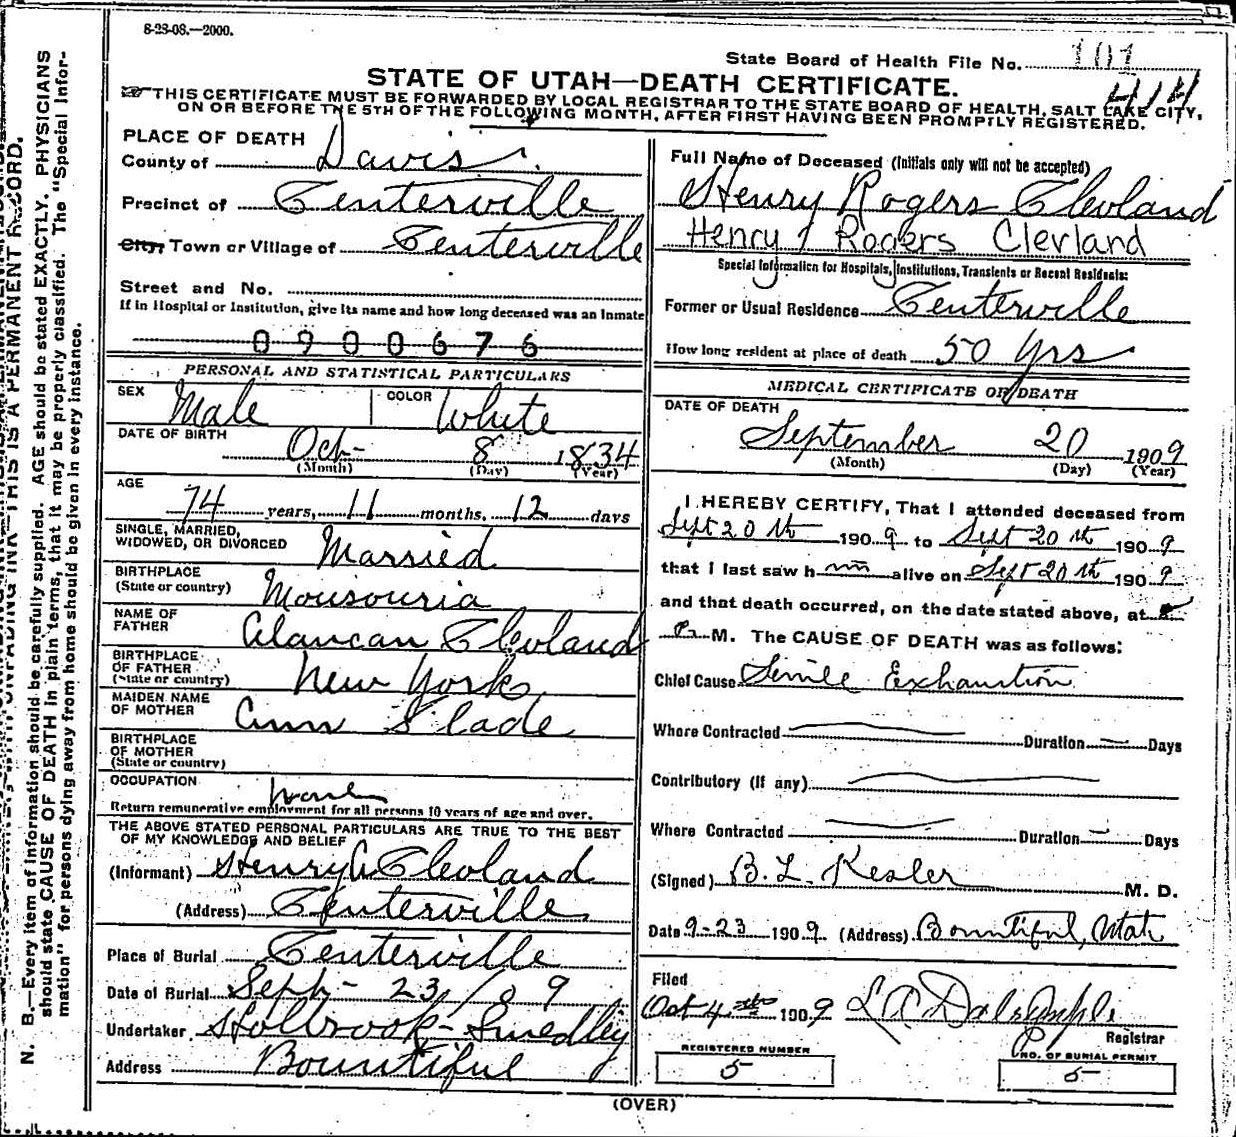 8-28-08.—2000.
State Board of Health File No. 101
414
STATE OF UTAH—DEATH CERTIFICATE.
THIS CERTIFICATE MUST BE FORWARDED BY LOCAL REGISTRAR TO THE STATE BOARD OF HEALTH, SALT LAKE CITY,
ON OR BEFORE THE 5TH OF THE FOLLOWING MONTH, AFTER FIRST HAVING BEEN PROMPTLY REGISTERED.
PLACE OF DEATH
County of Davis
Precinct of Centerville
City, Town or Village of Centerville
Street and No.
If in Hospital or Institution, give its name and how long deceased was an inmate
0900676
PERSONAL AND STATISTICAL PARTICULARS
SEX Male COLOR White
DATE OF BIRTH Oct- 8 1834
(Month) (Day) (Year)
AGE 74 years, 11 months, 12 days
SINGLE, MARRIED,
WIDOWED, OR DIVORCED Married
BIRTHPLACE
(State or country) Mousouria
NAME OF
FATHER Alancan Clevland
BIRTHPLACE
OF FATHER
(State or country) New York
MAIDEN NAME
OF MOTHER Ann Slade
BIRTHPLACE
OF MOTHER
(State or country)
OCCUPATION
Return remunerative employment for all persons 10 years of age and over.
THE ABOVE STATED PERSONAL PARTICULARS ARE TRUE TO THE BEST
OF MY KNOWLEDGE AND BELIEF
(Informant) Henry A Clevland
(Address) Centerville
Place of Burial Centerville
Date of Burial Sept- 23/09
Undertaker Holbrook-Smedley
Address Bountiful
Full Name of Deceased (Initials only will not be accepted)
Henry Rogers Clevland
Henry Rogers Clevland
Special Information for Hospitals, Institutions, Transients or Recent Residents:
Former or Usual Residence Centerville
How long resident at place of death 50 yrs
MEDICAL CERTIFICATE OF DEATH
DATE OF DEATH
September 20 1909
(Month) (Day) (Year)
I HEREBY CERTIFY, That I attended deceased from
Sept 20 th 1909 to Sept 20 th 1909
that I last saw him alive on Sept 20 th 1909
and that death occurred, on the date stated above, at
P. M. The CAUSE OF DEATH was as follows:
Chief Cause Senile Exhaustion
Where Contracted Duration Days
Contributory (If any)
Where Contracted Duration Days
(Signed) B. L. Kesler M. D.
Date 9-23 1909 (Address) Bountiful, Utah
Filed
Oct 4 th 1909 L A Dalrymple
Registrar
REGISTERED NUMBER
5
NO. OF BURIAL PERMIT
5
(OVER)
N. B.—Every item of information should be carefully supplied. AGE should be stated EXACTLY. PHYSICIANS
should state CAUSE OF DEATH in plain terms, that it may be properly classified. The "Special Infor-
mation" for persons dying away from home should be given in every instance.
UNFADING INK—THIS IS A PERMANENT RECORD.